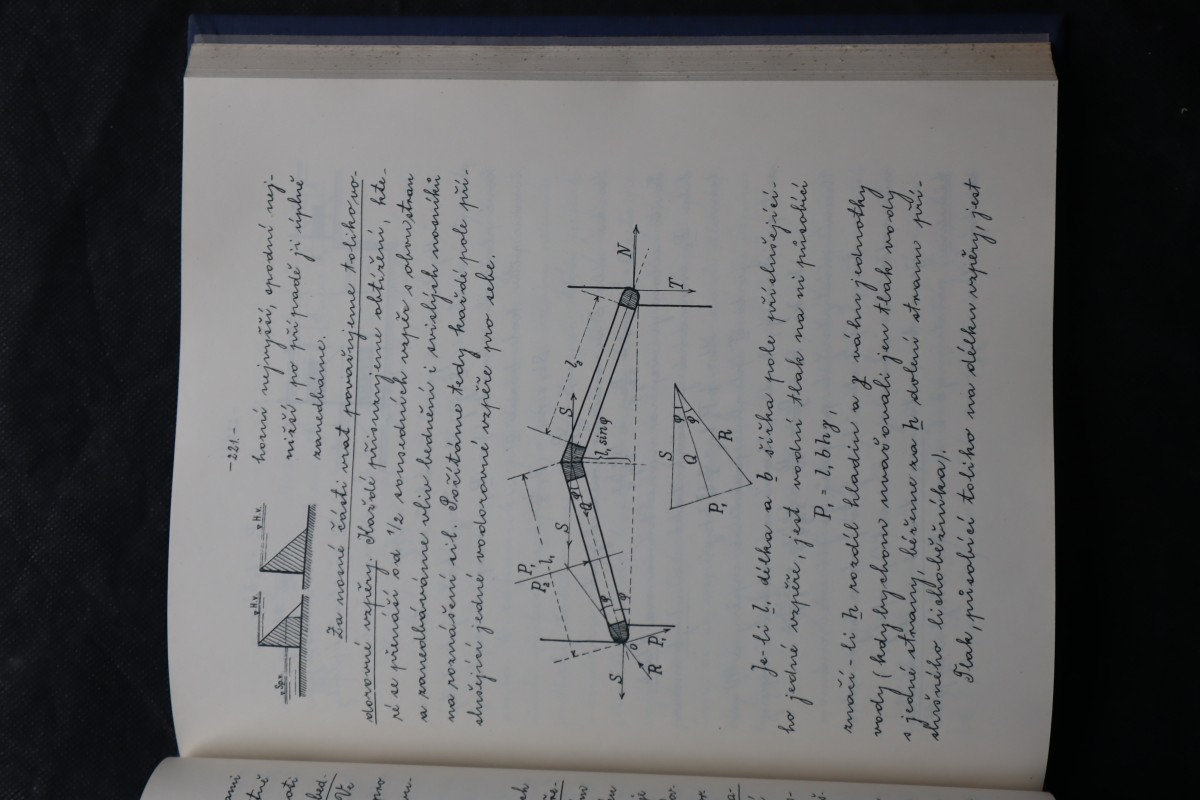 -221.-
horní nejvyšší, spodní nej-
nižší, po případě ji úplně
zanedbáme.
H.v.
H.v.
Sp.v.
Za nosné části vrat považujeme toliko vo-
dorovné vzpěry. Každé přisuzujeme obtížení, kte-
ré se přenáší od 1/2 sousedních vzpěr s obou stran
a zanedbáváme vliv bednění i svislých nosníků
na roznášení sil. Počítáme tedy každé pole pří-
slušející jedné vodorovné vzpěře pro sebe.
P₁
P₁/2
l₁
l₂
S
S
Q
φ
φ
φ
l₁ sin φ
N
T
S
R
P₁
o
S
Q
φ
φ
P₁
R
Je-li l₁ délka a b šířka pole příslušející-
ho jedné vzpěře, jest vodní tlak na ni působící
P₁ = l₁ b h γ,
značí-li h rozdíl hladin a γ váhu jednotky
vody (kdybychom uvažovali jen tlak vody
s jedné strany, běžeme za h dolení stranu pří-
slušného lichoběžníka).
Tlak, působící toliko na délku vzpěry, jest